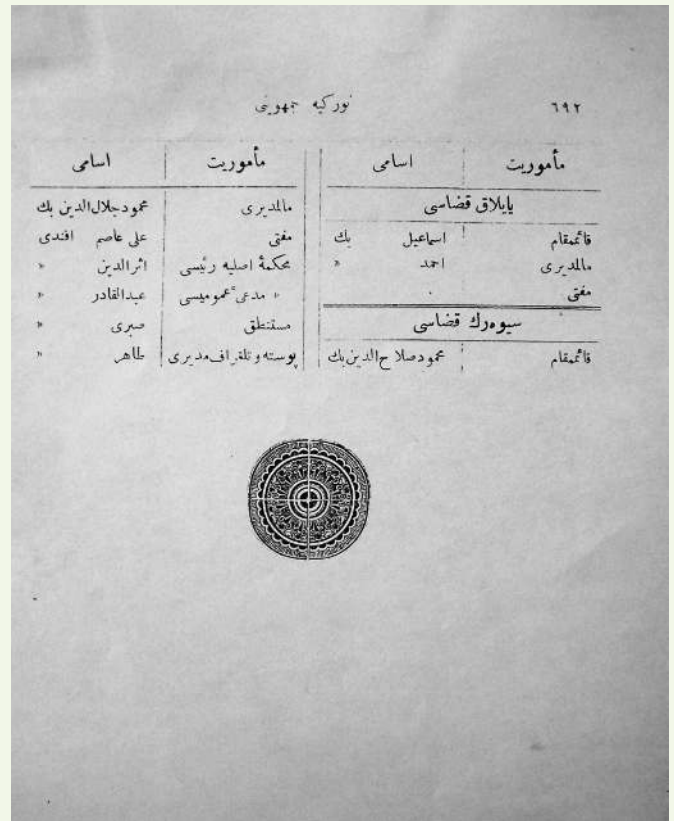 ٦٩٢ توركيه جمهوريتى
مأموريت اسامى
يايلاق قضاسى
قائممقام اسماعيل بك
مالمديرى احمد »
مفتى .
سيوه‌رك قضاسى
قائممقام محمود صلاح الدين بك
مأموريت اسامى
مالمديرى محمود جلال الدين بك
مفتى على عاصم افندى
محكمۀ اصليه رئيسى اثر الدين »
» مدعئ عموميسى عبدالقادر »
مستنطق صبرى »
پوسته و تلغراف مديرى طاهر »